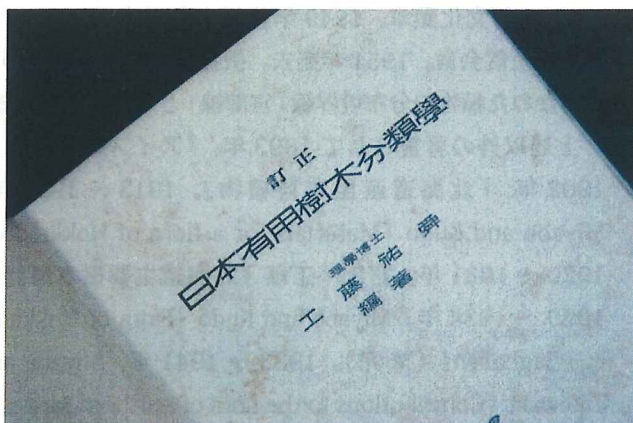 訂正
日本有用樹木分類學
理學博士
工藤祐舜
編著